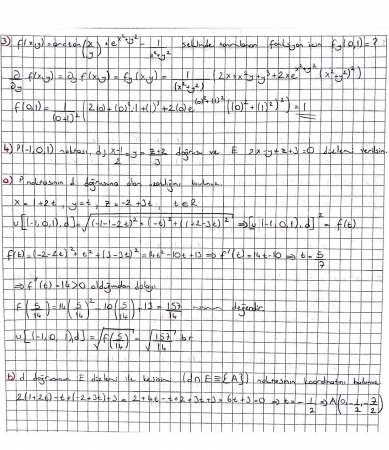 3) f(x,y)=arctan(x/y).e^(x²+y²) - 1/(x²+y²) şeklinde tanımlanan fonksiyon için fy(0,1)=?
∂/∂y f(x,y)=∂y f(x,y)=fy(x,y)= 1/(x²+y²)² (2x+x²y+y³+2xe^(x²+y²)(x²+y²)²)
f(0,1)= 1/(0+1)² (2(0)+(0)².1+(1)³+2(0)e^((0)²+(1)²)((0)²+(1)²)²)=1
4) P(-1,0,1) noktası, d: (x-1)/2=y=(z+2)/3 doğrusu ve E 2x-y+z+3=0 düzlemi verilsin.
a) P noktasının d doğrusuna olan uzaklığını bulunuz.
x=1+2t, y=t, z=-2+3t, t∈R
u[(-1,0,1),d]=√((-1-1-2t)²+(-t)²+(1+2-3t)²) ⇒[u(-1,0,1),d]²=f(t)
f(t)=(-2-2t)²+t²+(3-3t)²=14t²-10t+13 ⇒ f'(t)=14t-10 ⇒ t=5/7
⇒f''(t)=14>0 olduğundan dolayı
f(5/14)=14(5/14)²-10(5/14)+13=157/14 minimum değerdir.
u[(-1,0,1),d]=√f(5/14)=√(157/14) br
b) d doğrusunun E düzlemi ile kesişim (d∩E≡{A}) noktasının koordinatını bulunuz.
2(1+2t)-t+(-2+3t)+3=2+4t-t+2+3t+3=6t+3=0 ⇒ t=-1/2 ⇒ A(0,-1/2,-7/2)